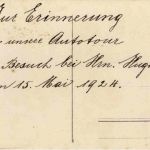 Zur Erinnerung
unsere Autotour
Besuch bei Hrn. Hugo
15. Mai 1924.